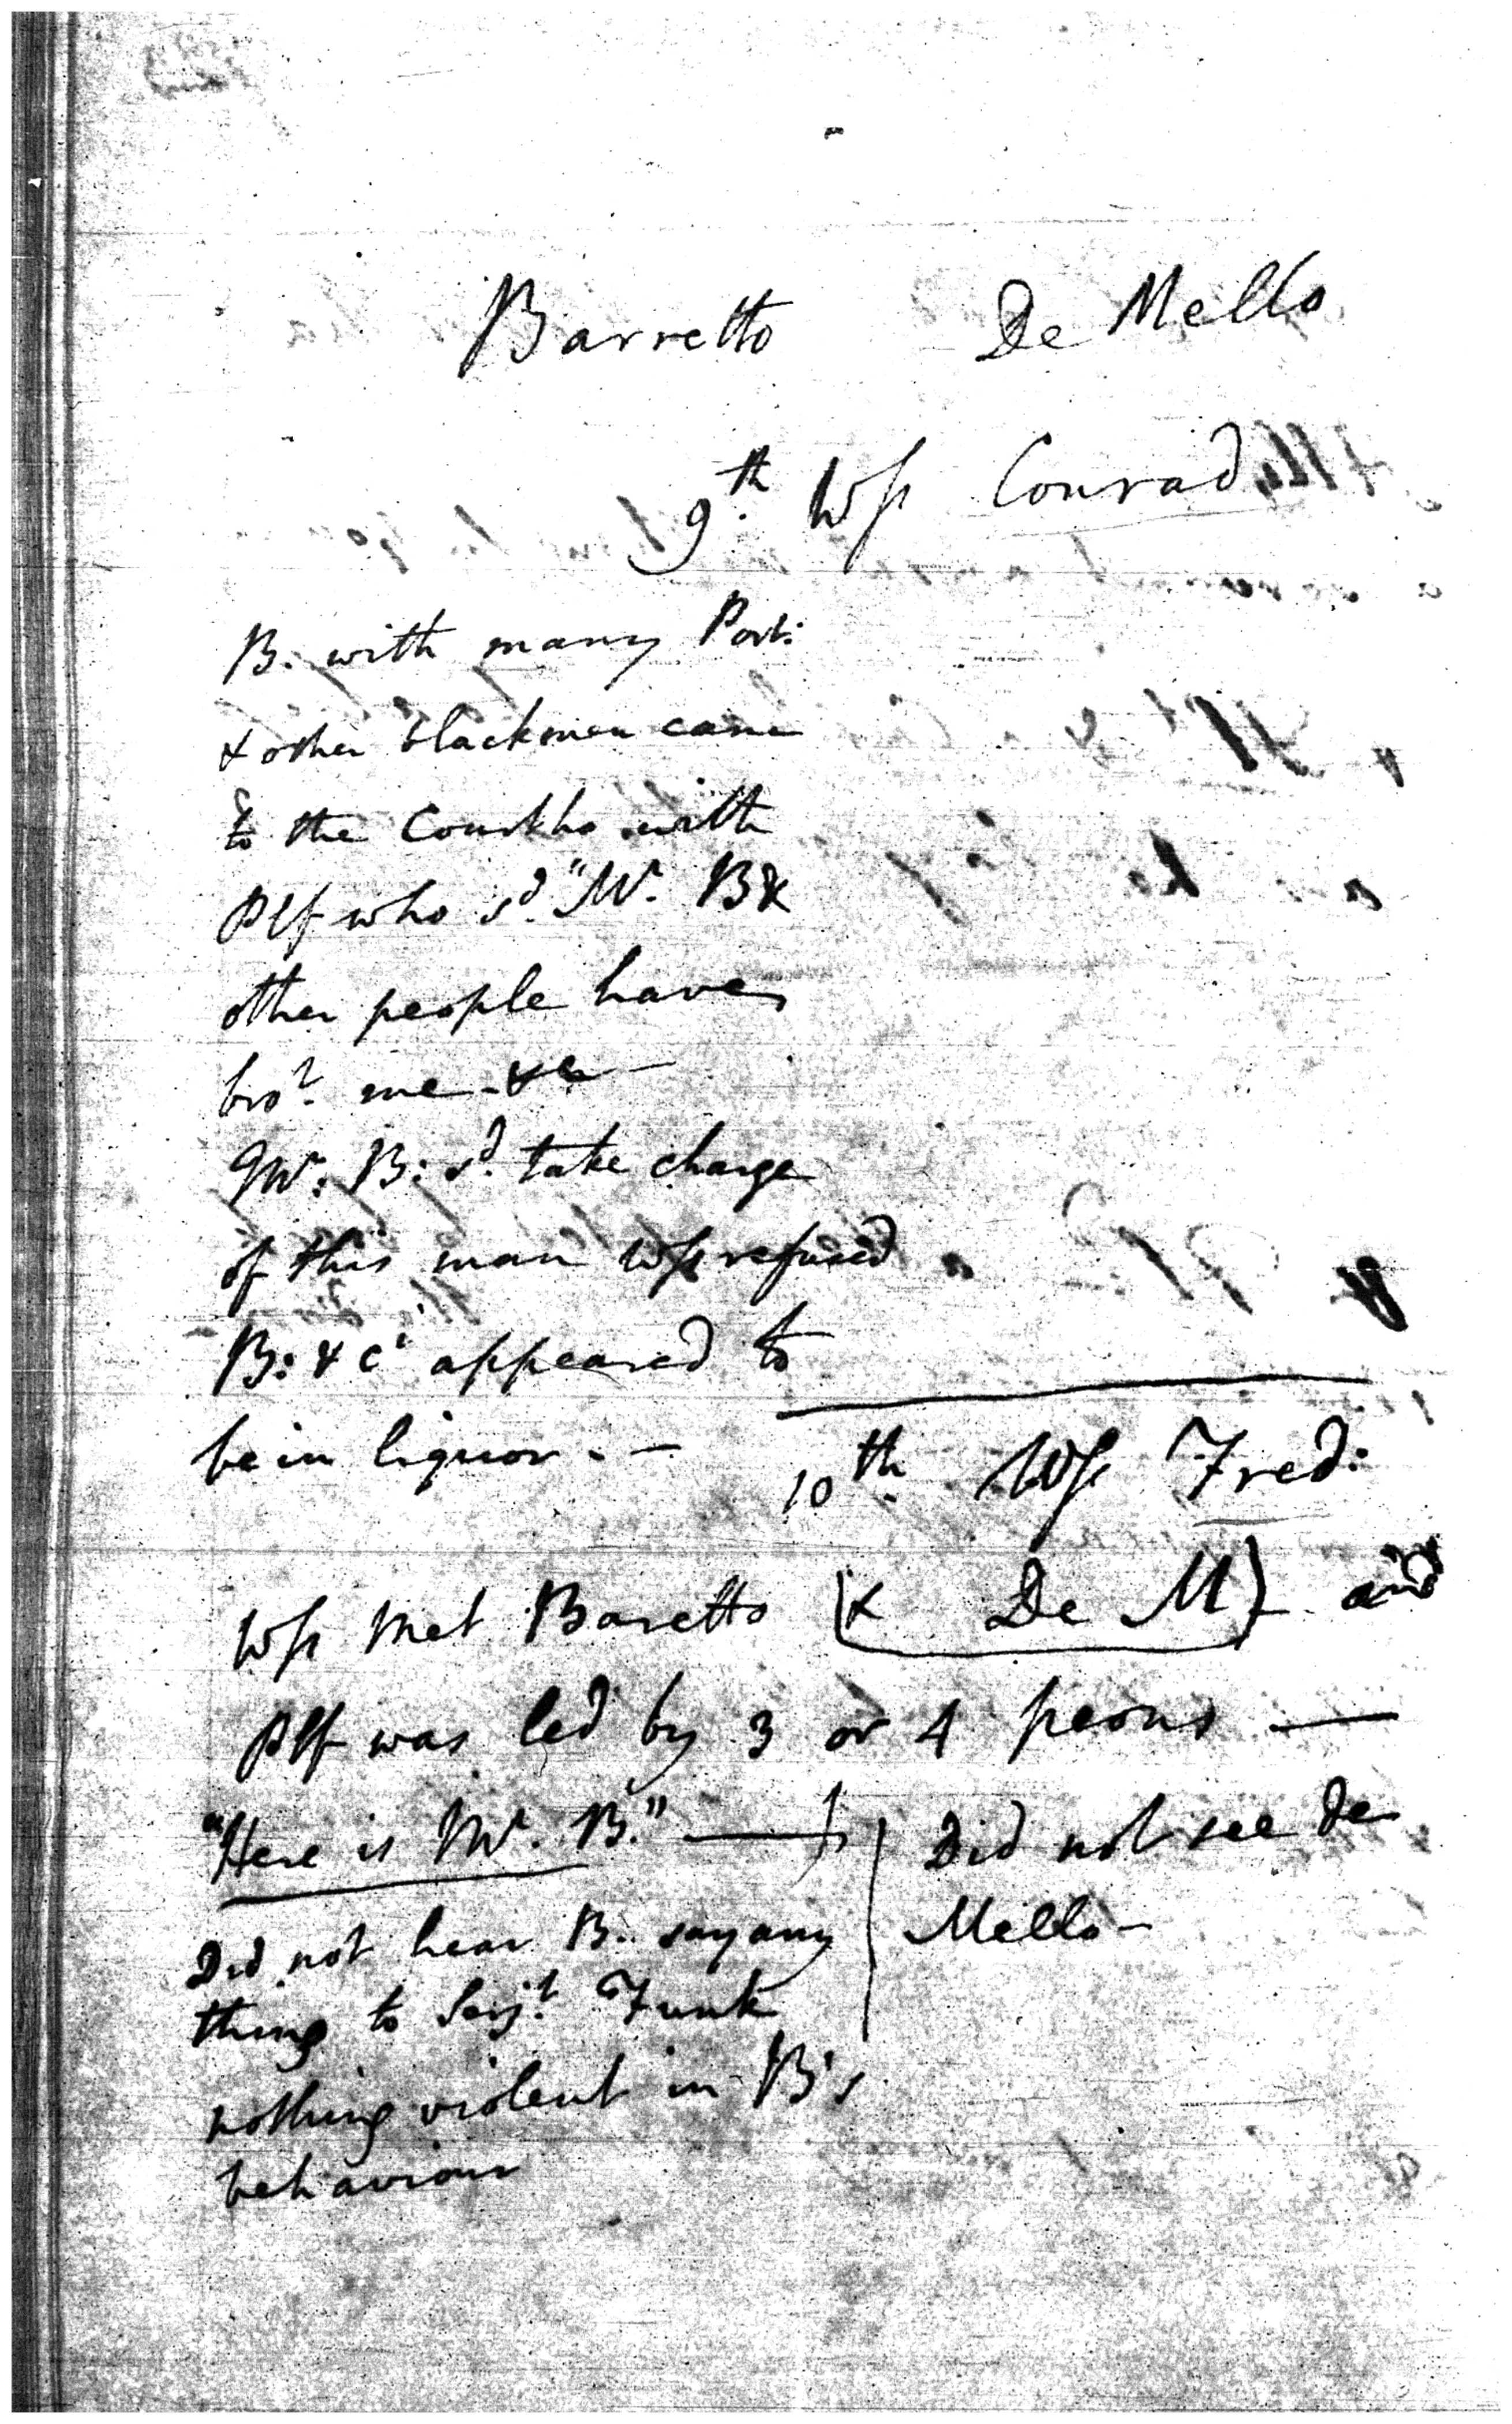 Barretto De Mello
9th. Wss Conrad
B. with many Port:
& other blackmen came
to the Courtho with
Plf who sd. "Mr. B &
other people have
brot. me - &c
Mr. B: sd. take charge
of this man Wss refused
B: & c appeared to
be in liquor. -
10th. Wss Fred:
Wss Met Baretto (& De M) and
Plf was led by 3 or 4 peons —
"Here is Mr. B." —
Did not hear B. say any
thing to Serjt. Funk
nothing violent in B's
behaviour
Did not see De
Mello -